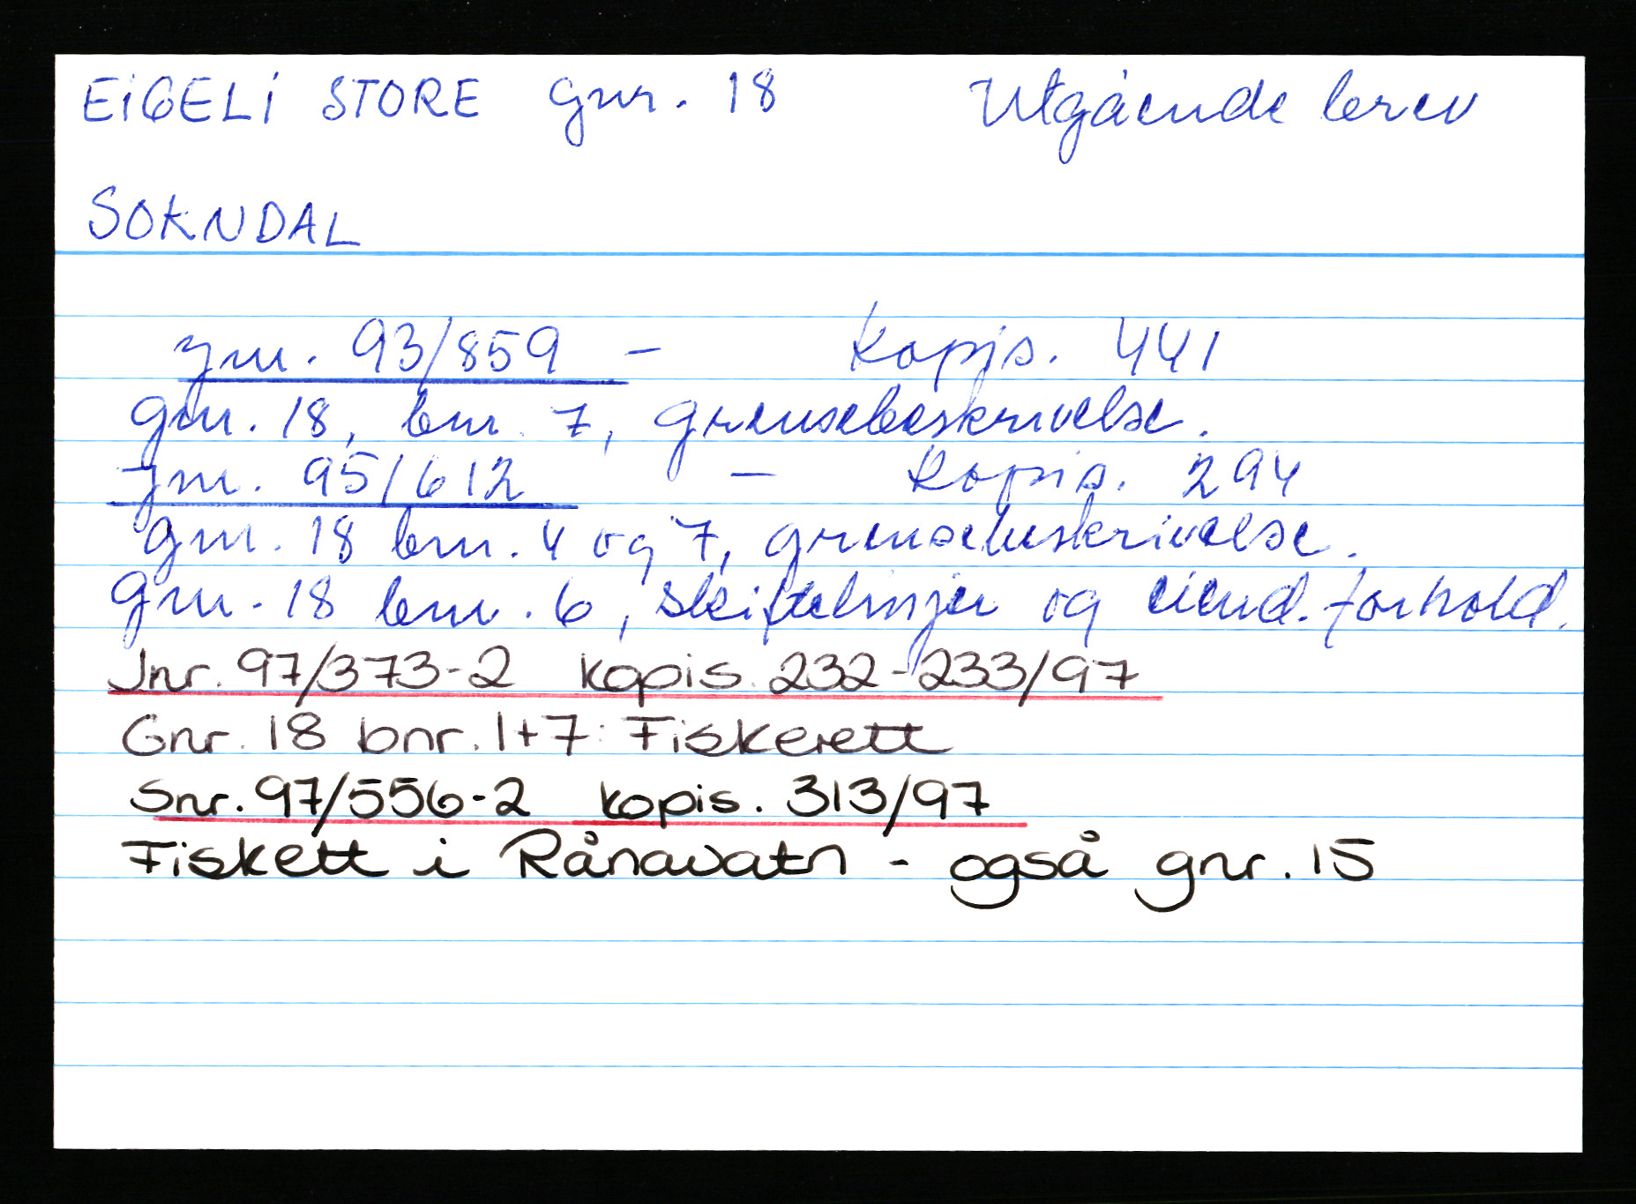 EIGELI STORE gnr. 18 Utgående brev
SOKNDAL
jnr. 93/859 - Kopis. 441
gnr. 18, bnr. 7, grensebeskrivelse.
jnr. 95/612 - Kopis. 294
gnr. 18 bnr. 4 og 7, grensebeskrivelse.
gnr. 18 bnr. 6, skiftelinjer og eiend. forhold.
Jnr. 97/373-2 kopis. 232-233/97
Gnr. 18 bnr. 1+7: Fiskerett
Snr. 97/556-2 kopis. 313/97
Fiskett i Rånavatn - også gnr. 15